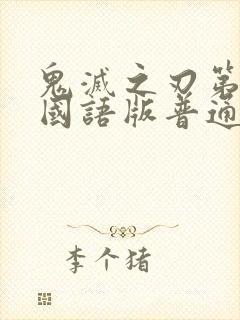 鬼滅之刃第
國語版普通
李个猪